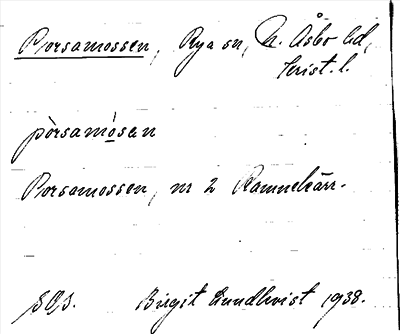 Porsamossen, Rya sn, N. Åsbo hd,
Krist. l.
pòrsamósen
Porsamossen, nr 2 Ramnekärr.
Birgit Lundkvist 1938.